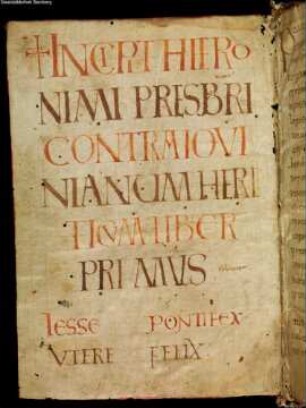 Staatsbibliothek Bamberg
+ INCIPIT HIERO
NIMI PRESBRI
CONTRA IOVI
NIANUM HERE
TICUM LIBER
PRIMUS
Iesse PONTIFEX
VTERE FELIX